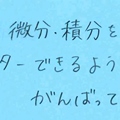 微分・積分を
ターできるよう
がんばって